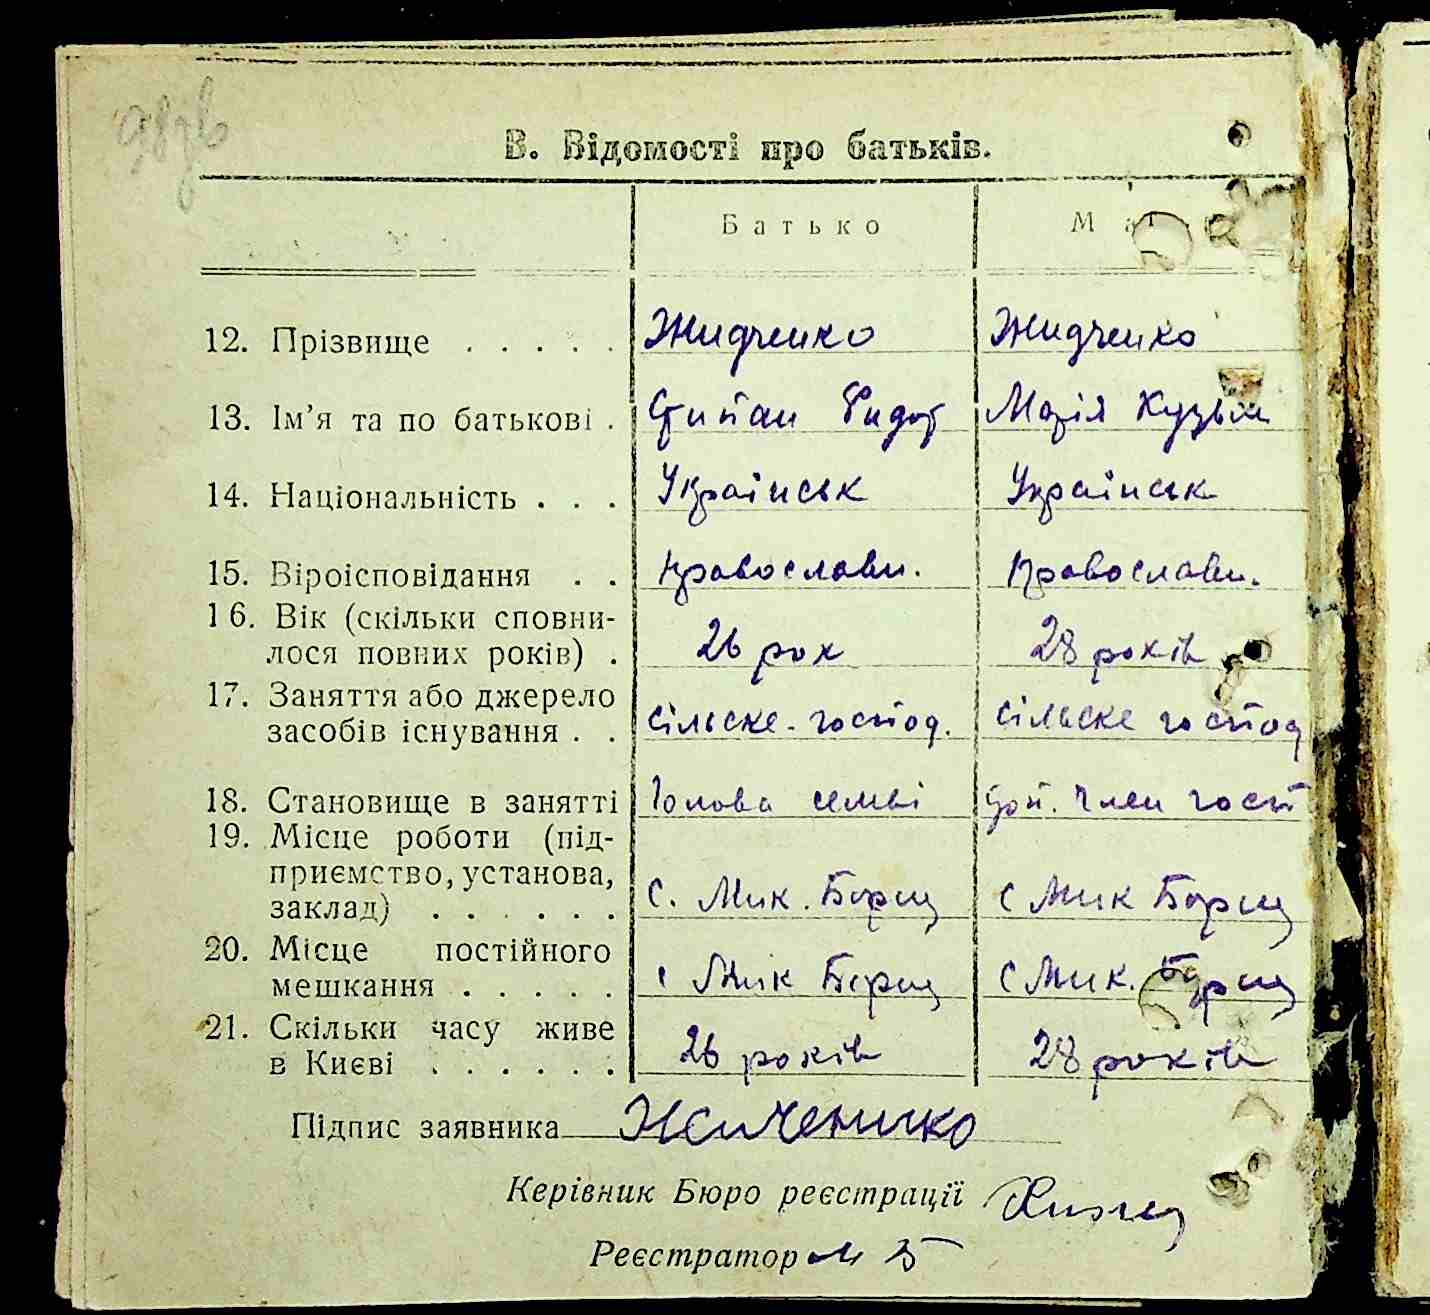 В. Відомості про батьків.
Батько Мат
12. Прізвище . . . . . Жидченко Жидченко
13. Ім'я та по батькові . Степан Федот Марія Кузьм
14. Національність . . . Українськ Українськ
15. Віроісповідання . . православн. православн.
16. Вік (скільки сповни-
лося повних років) . 26 рок 28 років
17. Заняття або джерело
засобів існування . . сільске-господ. сільске господ
18. Становище в занятті Голова семьі доп. член госп
19. Місце роботи (під-
приємство, установа,
заклад) . . . . . . С. Мик. Борщ с Мик Борщ
20. Місце постійного
мешкання . . . . . с Мик Борщ с Мик. Борщ
21. Скільки часу живе
в Києві . . . . . . 26 років 28 років
Підпис заявника
Керівник Бюро реєстрації
Реєстратор